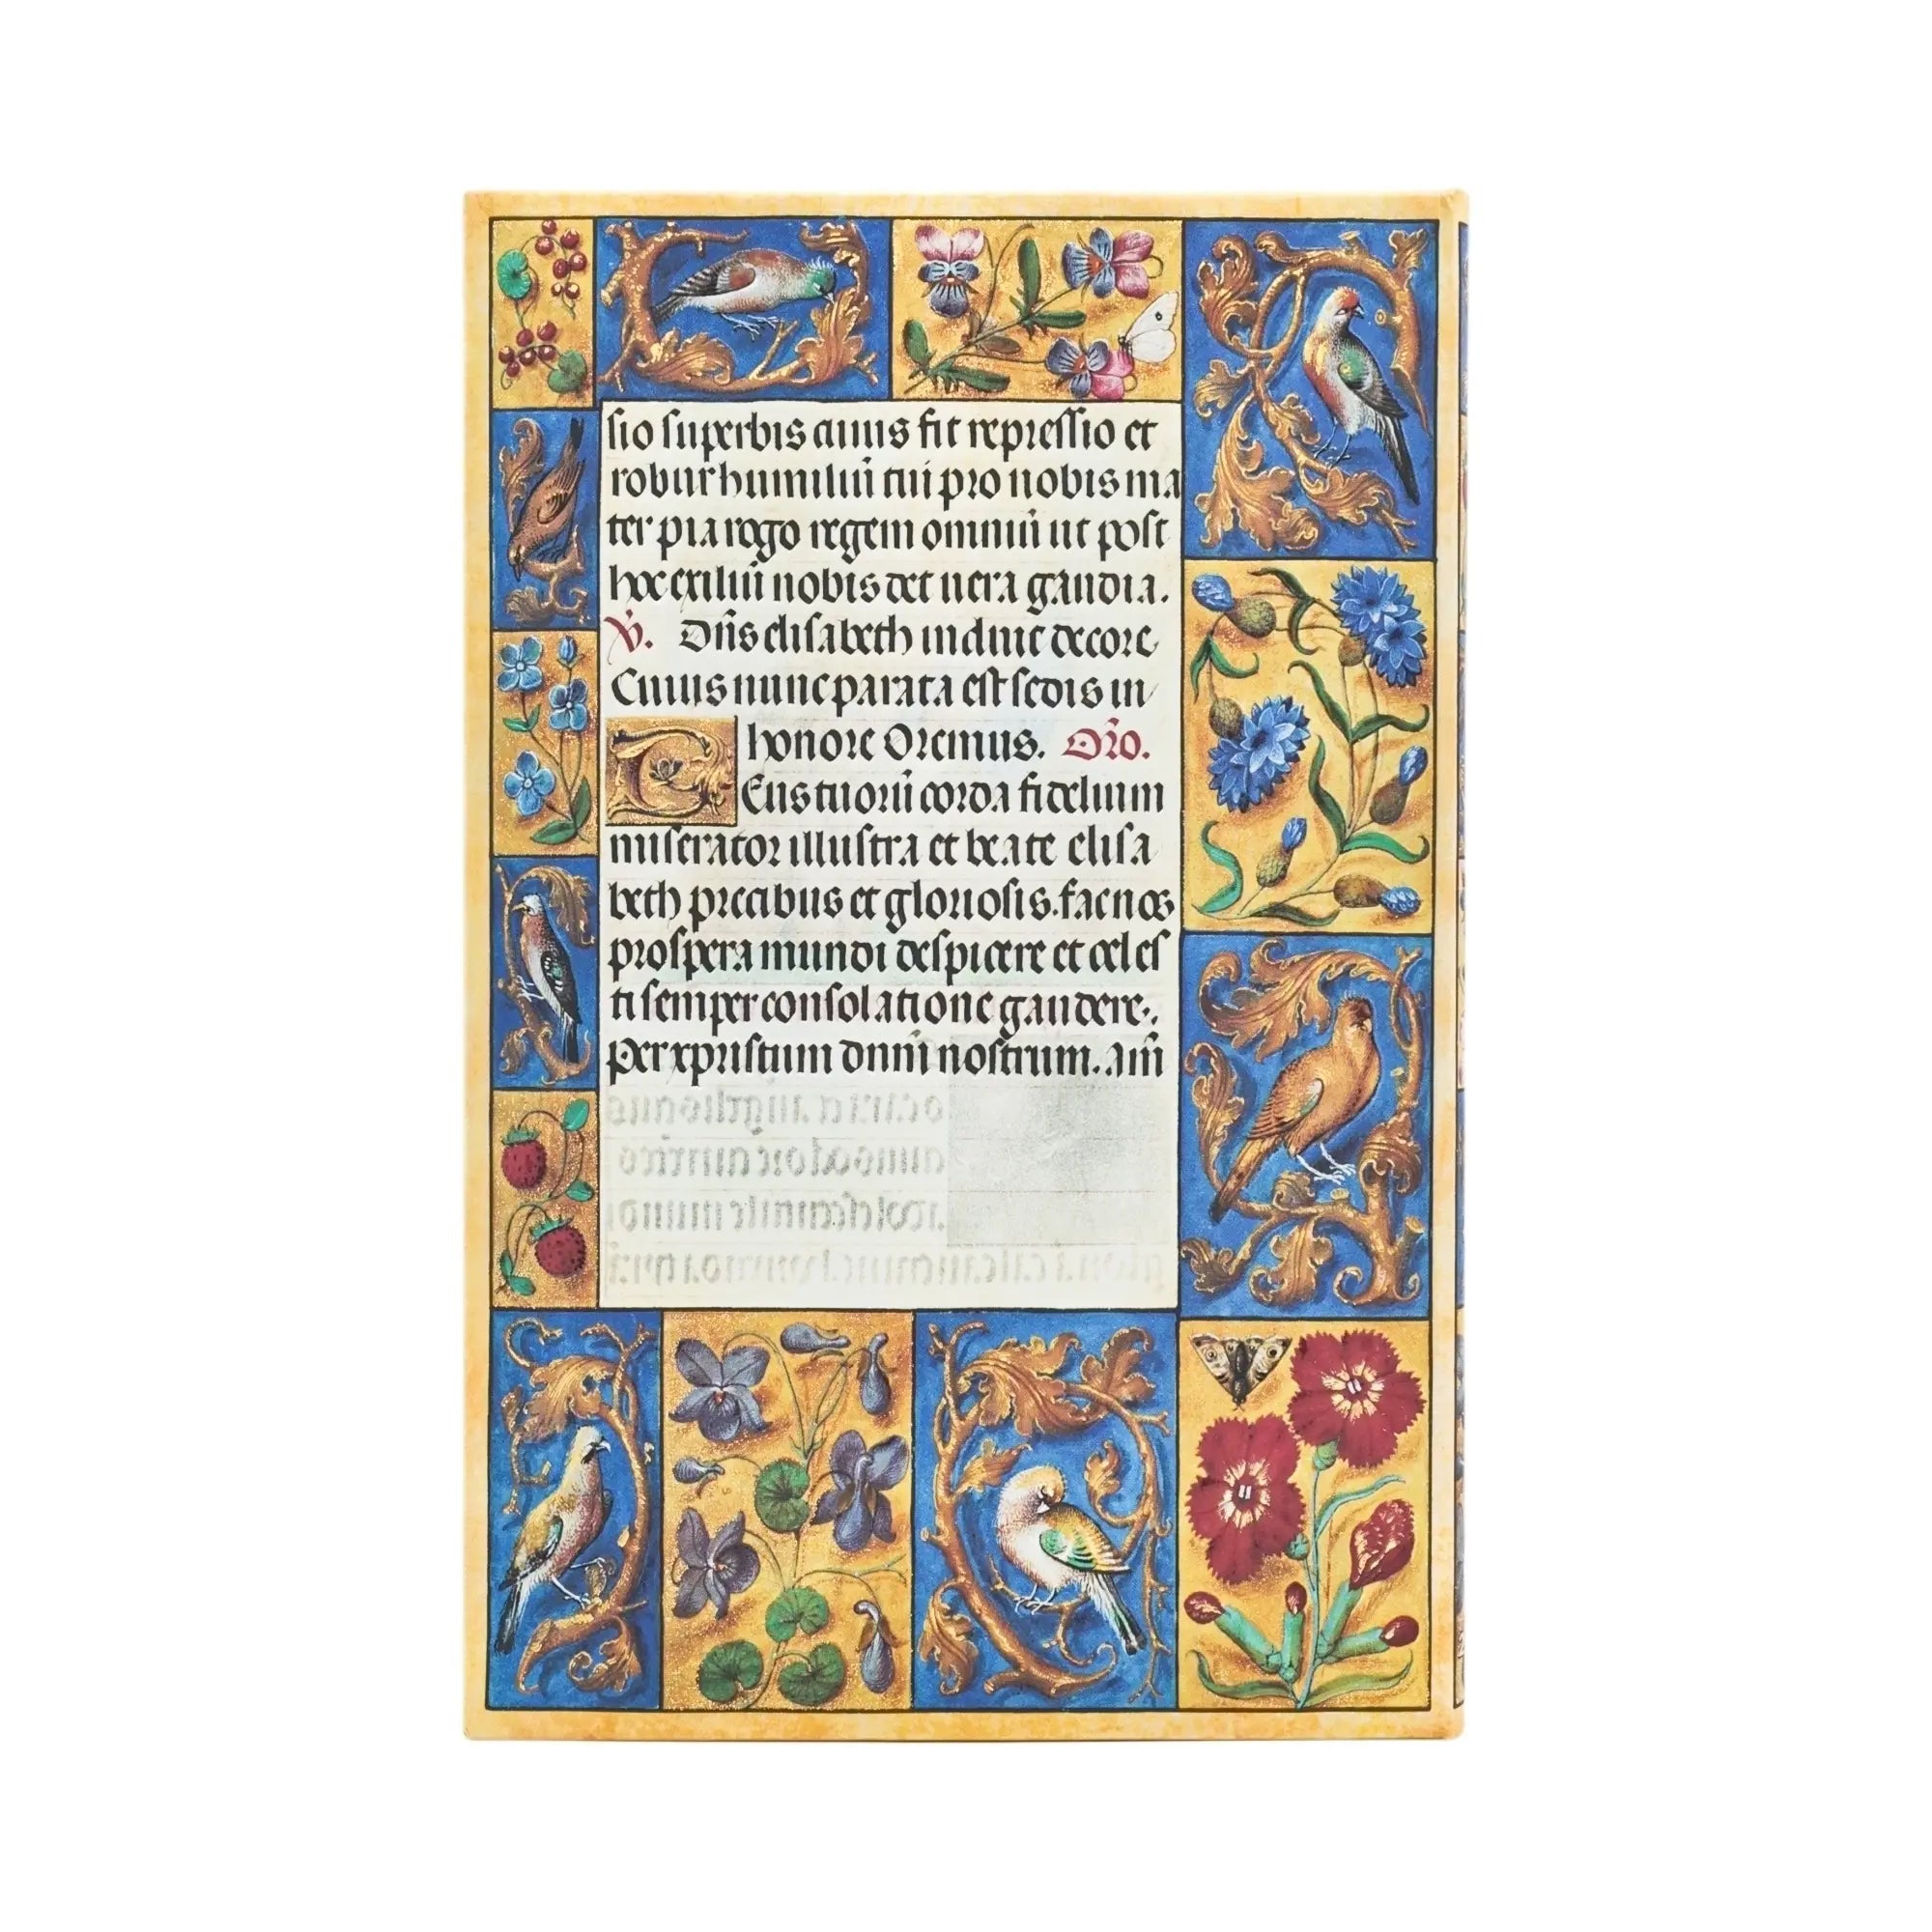 sio superbis cuius fit repressio et
robur humiliū tui pro nobis ma
ter pia rogo regem omniū ut post
hoc exiliū nobis det uera gaudia.
℣. Dn̄s elisabeth induit decore
Cuius nunc parata est sedis in
honore Oremus. Or̄o.
Deus tuorū corda fidelium
miserator illustra et beate elisa
beth precibus et gloriosis. fac nos
prospera mundi despicere et celes
ti semper consolatione gaudere.
Per xpristum dnm̄ nostrum. Am̄